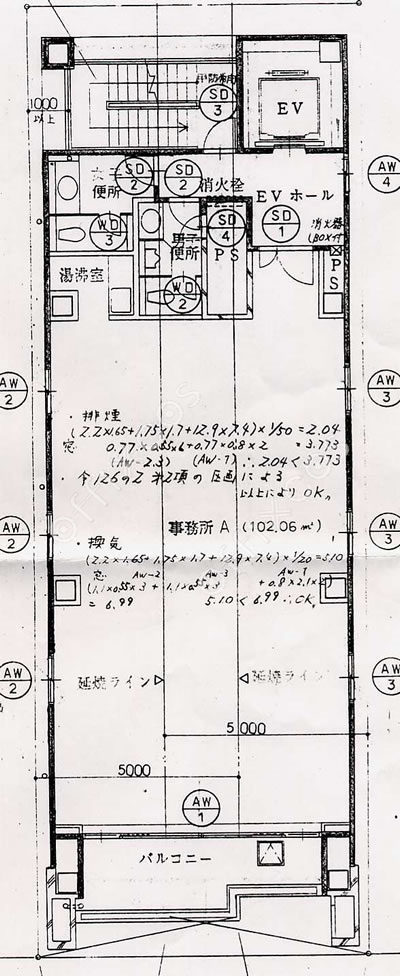 EV
SD
3
1000
以上
SD
2
SD
2
消火栓
EVホール
AW
4
便所
WD
3
SD
4
PS
SD
1
消火器
(BOX付
PS
男子
便所
WD
2
湯沸室
AW
2
AW
3
・排煙
(2.2×1.65+1.75×1.7+12.9×7.4)×1/50=2.04
窓 0.77×0.55×6+0.77×0.8×2 =3.773
(AW-2.3) (AW-1) ∴2.04<3.773
・令126の2 第2項の区画による
以上により OK〃
事務所A (102.06㎡)
AW
2
AW
3
・換気
(2.2×1.65+1.75×1.7+12.9×7.4)×1/20=5.10
窓 AW-2 AW-3 AW-1
(1.1×0.55×3+1.1×0.55×3 +0.8×2.1×2)
=6.99 5.10<6.99∴OK〃
AW
2
延焼ライン▷
◁延焼ライン
AW
3
5000
5000
AW
1
バルコニー